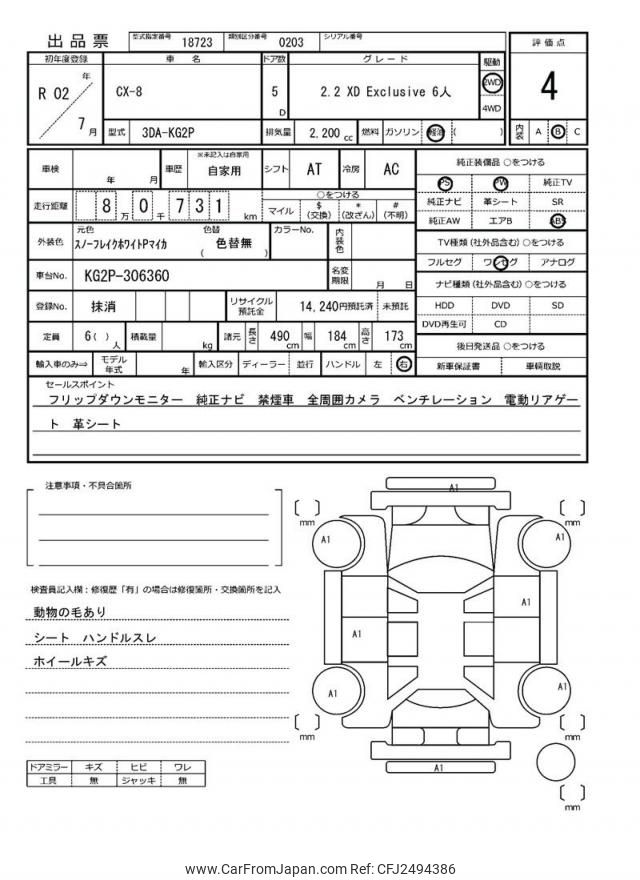 出品票 型式指定番号 18723 類別区分番号 0203 シリアル番号
初年度登録 車名 ドア数 グレード 駆動 評価点
R 02 年 7 月 CX-8 5 D 2.2 XD Exclusive 6人 2WD 4WD 4
型式 3DA-KG2P 排気量 2,200 cc 燃料 ガソリン 軽油 ( ) 内装 A B C
車検 年 月 車歴 ※未記入は自家用 自家用 シフト AT 冷房 AC 純正装備品 ○をつける
PS PW 純正TV
走行距離 8 万 0 千 7 3 1 km ○をつける マイル $ (交換) * (改ざん) # (不明) 純正ナビ 革シート SR
純正AW エアB ABS
外装色 元色 スノーフレイクホワイトPマイカ 色替 ( 色替無 ) カラーNo. 内装色 TV種類 (社外品含む) ○をつける
フルセグ ワンセグ アナログ
車台No. KG2P-306360 名変期限 月 日 ナビ種類 (社外品含む) ○をつける
登録No. 抹消 リサイクル預託金 14,240円預託済 未預託 HDD DVD SD
DVD再生可 CD
定員 6( ) 人 積載量 kg 諸元 長さ 490 cm 幅 184 cm 高さ 173 cm 後日発送品 ○をつける
輸入車のみ⇒ モデル年式 年 輸入区分 ディーラー 並行 ハンドル 左 右 新車保証書 車輌取説
セールスポイント
フリップダウンモニター 純正ナビ 禁煙車 全周囲カメラ ベンチレーション 電動リアゲー
ト 革シート
注意事項・不具合箇所
検査員記入欄：修復歴「有」の場合は修復箇所・交換箇所を記入
動物の毛あり
シート ハンドルスレ
ホイールキズ
A1
mm mm
A1 A1
A1 A1
A1 A1
mm mm
A1
mm
ドアミラー キズ ヒビ ワレ
工具 無 ジャッキ 無
www.CarFromJapan.com Ref: CFJ2494386